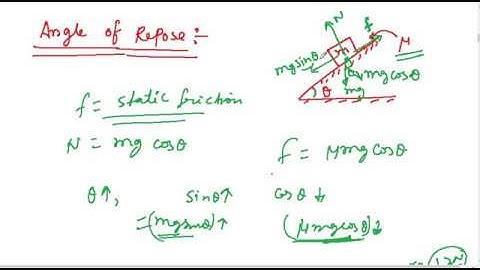 Angle of Repose :-
N
f
μ
m
mg sinθ
θ
mg cosθ
mg
θ
f = static friction
N = mg cosθ
f = μmg cosθ
θ↑, sinθ↑ cosθ↓
=(mg sinθ)↑ (μmg cosθ)↓